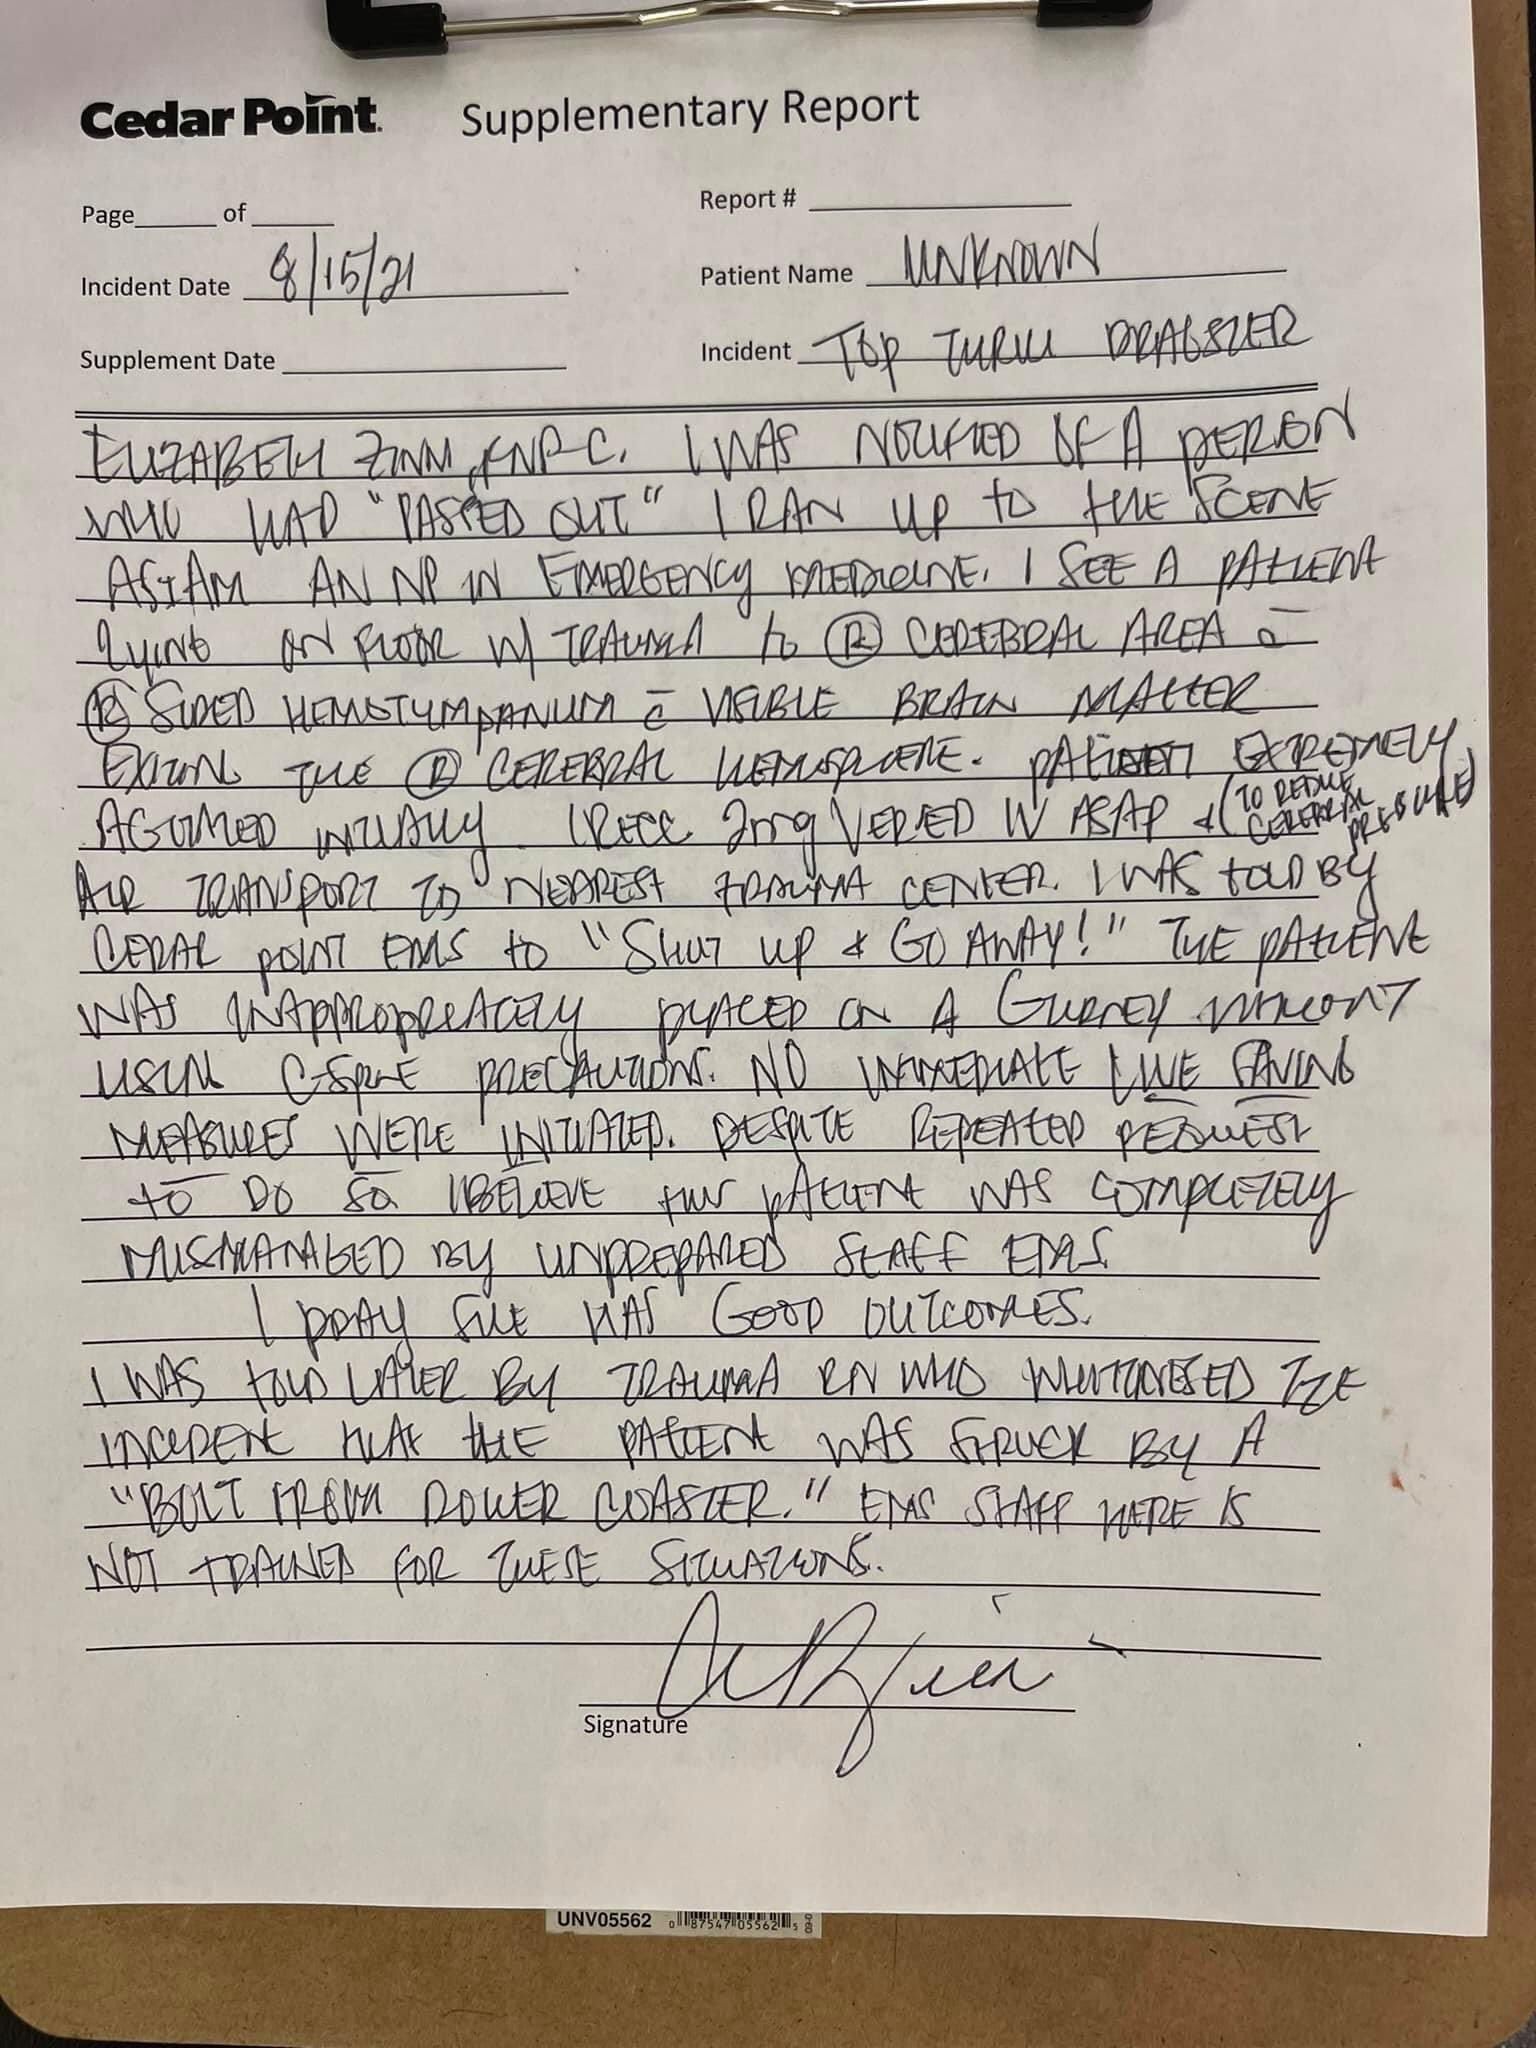 Cedar Point Supplementary Report
Page of
Report #
Incident Date 8/15/21
Patient Name UNKNOWN
Supplement Date
Incident TOP THRILL DRAGSTER
ELIZABETH ZINM, FNP-C. I WAS NOTIFIED OF A PERSON
WHO HAD "PASSED OUT" I RAN UP TO THE SCENE
AS I AM AN NP IN EMERGENCY MEDICINE. I SEE A PATIENT
LYING ON FLOOR W/ TRAUMA to Ⓡ CEREBRAL AREA c̄
Ⓡ SIDED HEMOTYMPANUM c̄ VISIBLE BRAIN MATTER
EXITING THE Ⓡ CEREBRAL HEMISPHERE. PATIENT EXTREMELY
AGITATED INITIALLY. I RECC. 2mg VERSED IV ASAP & (TO REDUCE CEREBRAL PRESSURE)
AIR TRANSPORT TO NEAREST TRAUMA CENTER. I WAS TOLD BY
CEDAR POINT EMS to "SHUT UP & GO AWAY!" THE PATIENT
WAS INAPPROPRIATELY PLACED ON A GURNEY WITHOUT
USING C-SPINE PRECAUTIONS. NO IMMEDIATE LIVE SAVING
MEASURES WERE INITIATED. DESPITE REPEATED REQUEST
TO DO SO I BELIEVE THIS PATIENT WAS COMPLETELY
MISMANAGED BY UNPREPARED STAFF EMS.
I PRAY SHE HAS GOOD OUTCOMES.
I WAS TOLD LATER BY TRAUMA RN WHO WHITNESSED THE
INCIDENT THAT THE PATIENT WAS STRUCK BY A
"BOLT FROM ROLLER COASTER." EMS STAFF HERE IS
NOT TRAINED FOR THESE SITUATIONS.
Signature
UNV05562
0 87547 05562 5